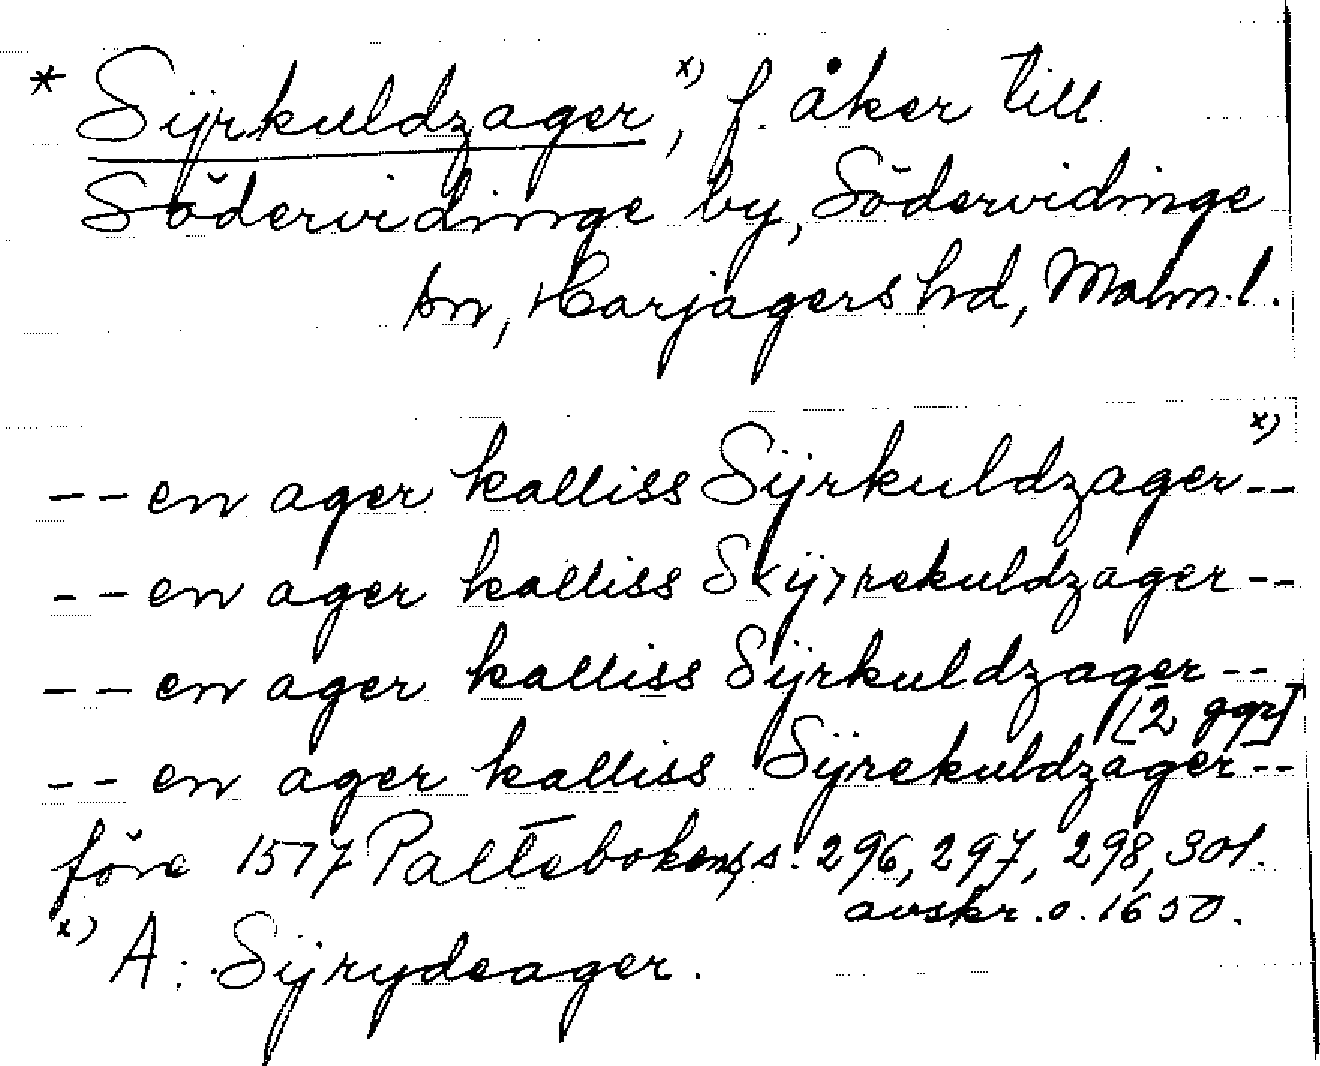 * Sÿrkuldzager x), f. åker till
Södervidinge by, Södervidinge
sn, Harjagers hd, Malm.l.
-- en ager kalliss Sÿrkuldzager x) --
-- en ager kalliss S<ÿ>rekuldzager --
-- en ager kalliss Sÿrkuldzager --
[2 ggr]
-- en ager kalliss Sÿrekuldzager --
före 1577 Palteboken, s. 296, 297, 298, 301.
avskr. o. 1650.
x) A: Sÿrydeager.